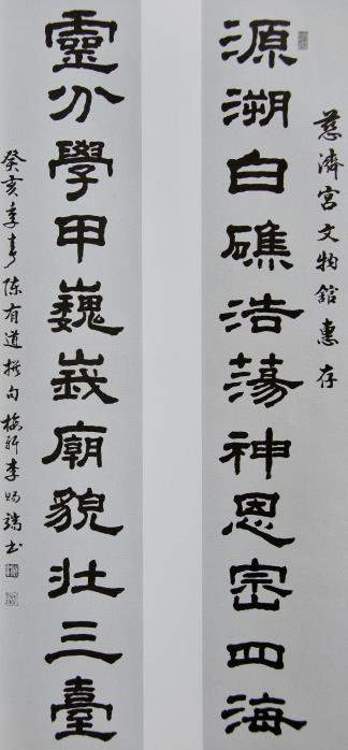 慈濟宮文物舘惠存
源溯白礁浩蕩神恩崈四海
靈分學甲巍峩廟貌壯三臺
癸亥季春陳有道撰句李書